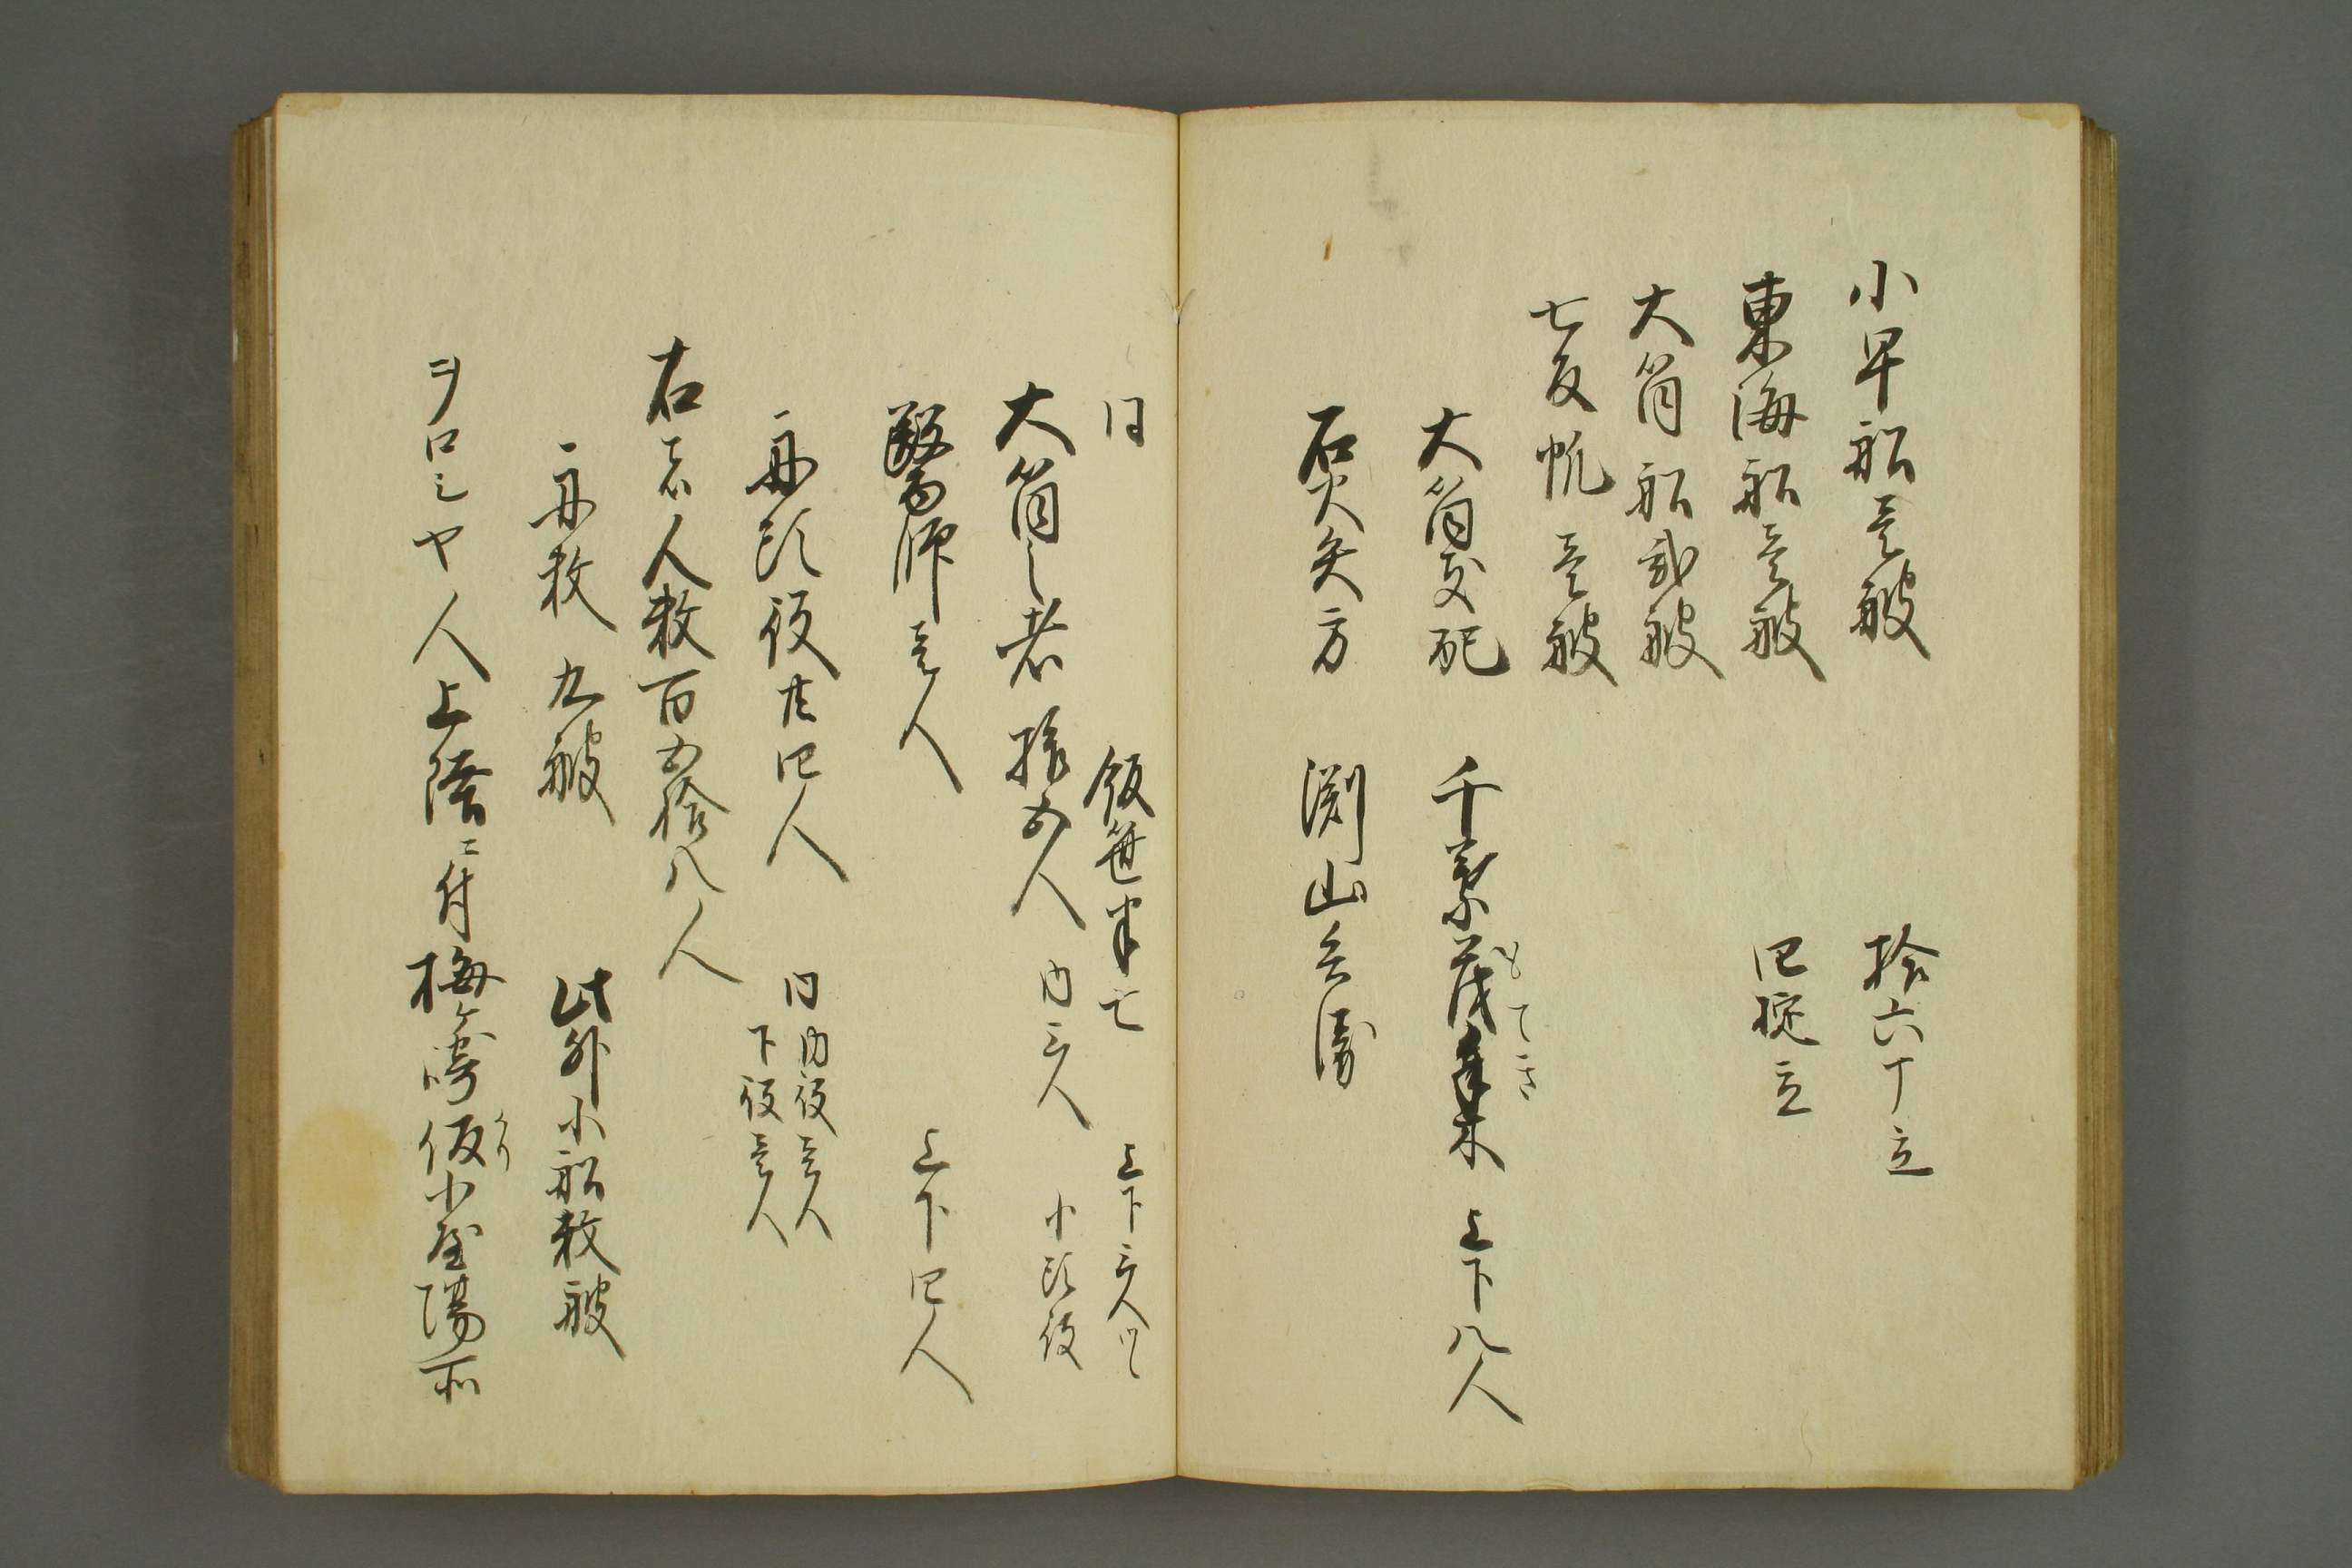 小早船壱艘　拾六丁立
東海船壱艘　四挺立
大筒船弐艘
七反帆壱艘
大筒支配　千葉茂手木　上下八人
もてき
石火矢方　渕山兵濤
同　飯笹半七　上下三人ツヽ
大筒之者　拾五人　内三人　小頭役
醫師壱人　上下四人
一舟頭役共四人　同内役壱人
下役壱人
右之者人数百五拾八人
一舟数　九艘　此外小船数艘
ヲロシヤ人上陸ニ付梅ヶ崎仮小屋場所
かり